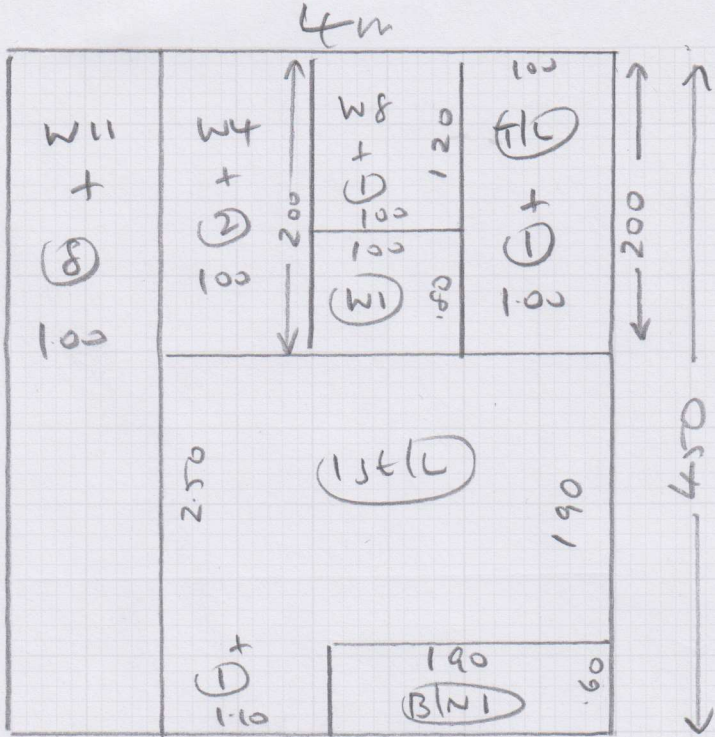 4m
W11
+
8
1.00
W4
+
2
100
200
W8
+
1
100
120
100
W1
.80
100
T/L
+
1
1.00
200
450
2.50
1st/L
190
+
1
1.10
190
B/N1
.60